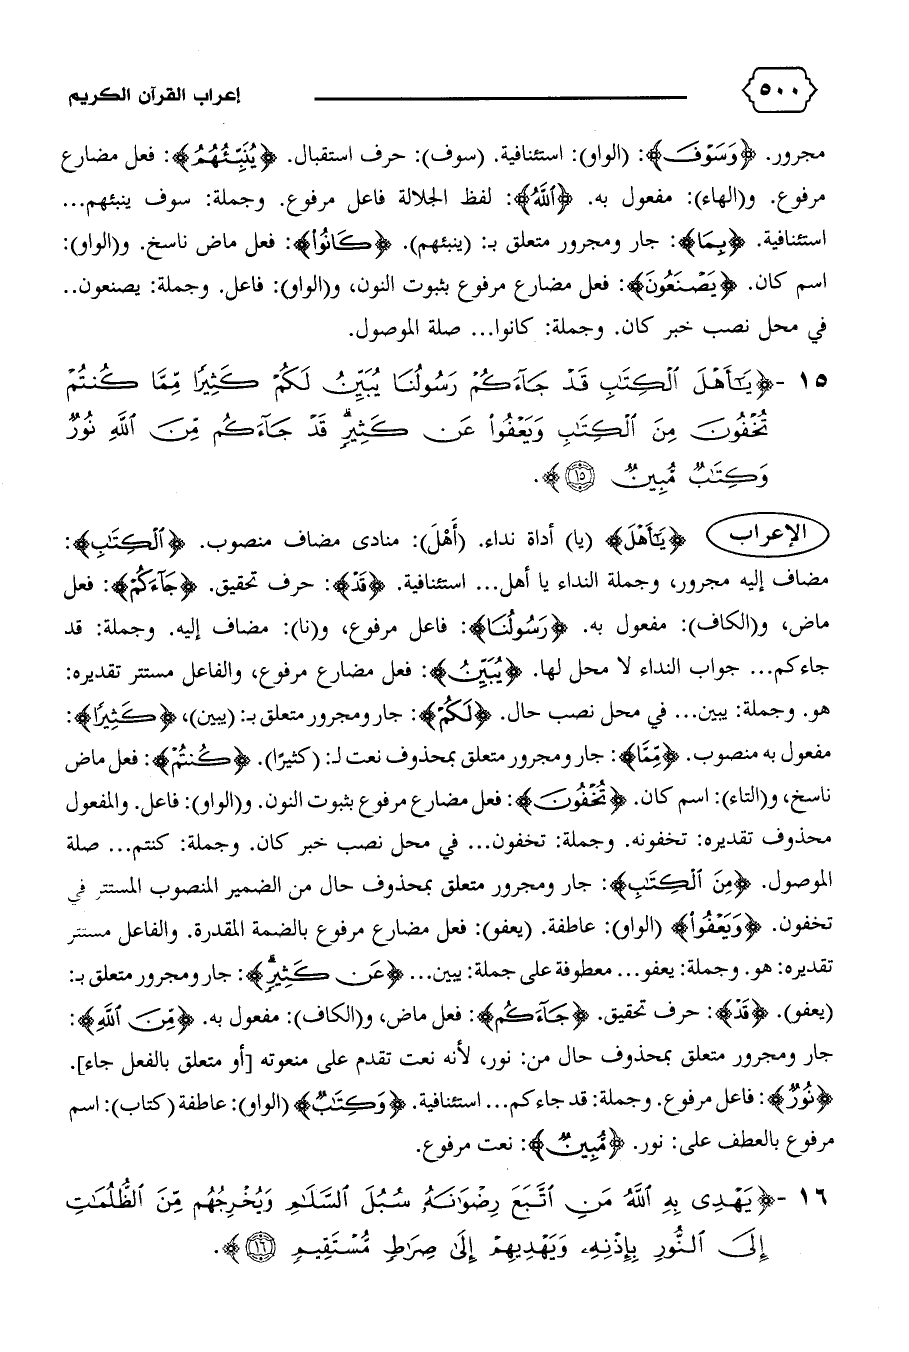 ٥٠٠ إعراب القرآن الكريم
مجرور. ﴿وَسَوْفَ﴾: (الواو): استئنافية. (سوف): حرف استقبال. ﴿يُنَبِّئُهُمُ﴾: فعل مضارع
مرفوع. و(الهاء): مفعول به. ﴿ٱللَّهُ﴾: لفظ الجلالة فاعل مرفوع. وجملة: سوف ينبئهم...
استئنافية. ﴿بِمَا﴾: جار ومجرور متعلق بـ: (ينبئهم). ﴿كَانُوا۟﴾: فعل ماض ناسخ. و(الواو):
اسم كان. ﴿يَصْنَعُونَ﴾: فعل مضارع مرفوع بثبوت النون، و(الواو): فاعل. وجملة: يصنعون..
في محل نصب خبر كان. وجملة: كانوا... صلة الموصول.
١٥ -﴿يَٰٓأَهْلَ ٱلْكِتَٰبِ قَدْ جَآءَكُمْ رَسُولُنَا يُبَيِّنُ لَكُمْ كَثِيرًا مِّمَّا كُنتُمْ
تُخْفُونَ مِنَ ٱلْكِتَٰبِ وَيَعْفُوا۟ عَن كَثِيرٍۢ ۚ قَدْ جَآءَكُم مِّنَ ٱللَّهِ نُورٌ
وَكِتَٰبٌ مُّبِينٌ ١٥﴾.
الإعراب ﴿يَٰٓأَهْلَ﴾ (يا) أداة نداء. (أَهْلَ): منادى مضاف منصوب. ﴿ٱلْكِتَٰبِ﴾:
مضاف إليه مجرور، وجملة النداء يا أهل... استئنافية. ﴿قَدْ﴾: حرف تحقيق. ﴿جَآءَكُمْ﴾: فعل
ماض، و(الكاف): مفعول به. ﴿رَسُولُنَا﴾: فاعل مرفوع، و(نا): مضاف إليه. وجملة: قد
جاءكم... جواب النداء لا محل لها. ﴿يُبَيِّنُ﴾: فعل مضارع مرفوع، والفاعل مستتر تقديره:
هو. وجملة: يبين... في محل نصب حال. ﴿لَكُمْ﴾: جار ومجرور متعلق بـ: (يبين)، ﴿كَثِيرًا﴾:
مفعول به منصوب. ﴿مِّمَّا﴾: جار ومجرور متعلق بمحذوف نعت لـ: (كثيرًا). ﴿كُنتُمْ﴾: فعل ماض
ناسخ، و(التاء): اسم كان. ﴿تُخْفُونَ﴾: فعل مضارع مرفوع بثبوت النون. و(الواو): فاعل. والمفعول
محذوف تقديره: تخفونه. وجملة: تخفون... في محل نصب خبر كان. وجملة: كنتم... صلة
الموصول. ﴿مِنَ ٱلْكِتَٰبِ﴾: جار ومجرور متعلق بمحذوف حال من الضمير المنصوب المستتر في
تخفون. ﴿وَيَعْفُوا۟﴾ (الواو): عاطفة. (يعفو): فعل مضارع مرفوع بالضمة المقدرة. والفاعل مستتر
تقديره: هو. وجملة: يعفو... معطوفة على جملة: يبين... ﴿عَن كَثِيرٍۢ ۚ﴾: جار ومجرور متعلق بـ:
(يعفو). ﴿قَدْ﴾: حرف تحقيق. ﴿جَآءَكُم﴾: فعل ماض، و(الكاف): مفعول به. ﴿مِّنَ ٱللَّهِ﴾:
جار ومجرور متعلق بمحذوف حال من: نور، لأنه نعت تقدم على منعوته [أو متعلق بالفعل جاء].
﴿نُورٌ﴾: فاعل مرفوع. وجملة: قد جاءكم... استئنافية. ﴿وَكِتَٰبٌ﴾ (الواو): عاطفة (كتاب): اسم
مرفوع بالعطف على: نور. ﴿مُّبِينٌ﴾: نعت مرفوع.
١٦ -﴿يَهْدِى بِهِ ٱللَّهُ مَنِ ٱتَّبَعَ رِضْوَٰنَهُۥ سُبُلَ ٱلسَّلَٰمِ وَيُخْرِجُهُم مِّنَ ٱلظُّلُمَٰتِ
إِلَى ٱلنُّورِ بِإِذْنِهِۦ وَيَهْدِيهِمْ إِلَىٰ صِرَٰطٍ مُّسْتَقِيمٍ ١٦﴾.